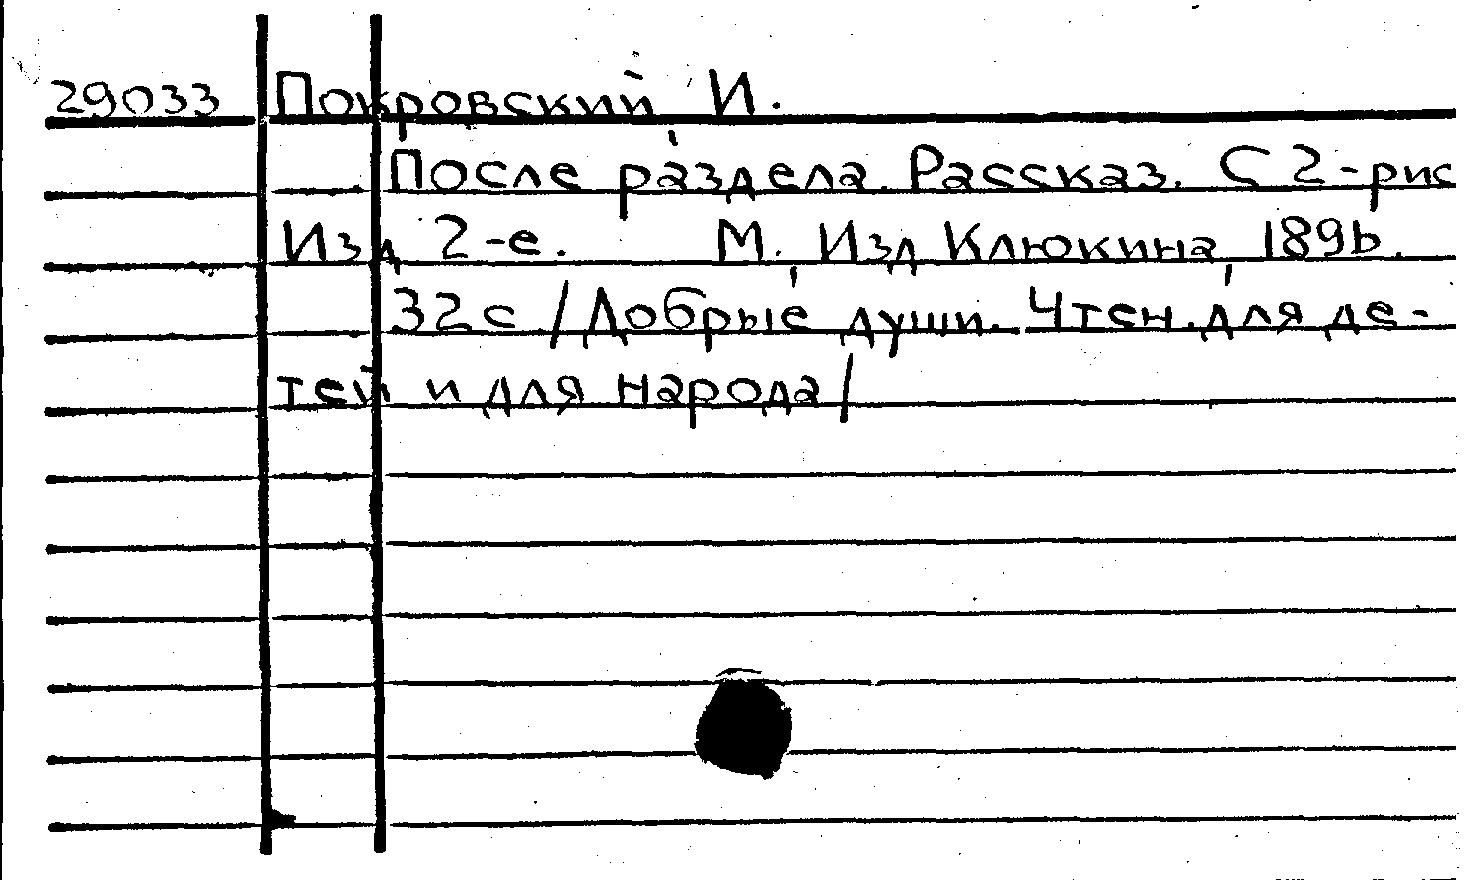 29033 Покровский И.
После раздела. Рассказ. С 2-рис
Изд 2-е. М. Изд Клюкина, 1896.
32с /Добрые души. Чтен. для де-
тей и для народа/